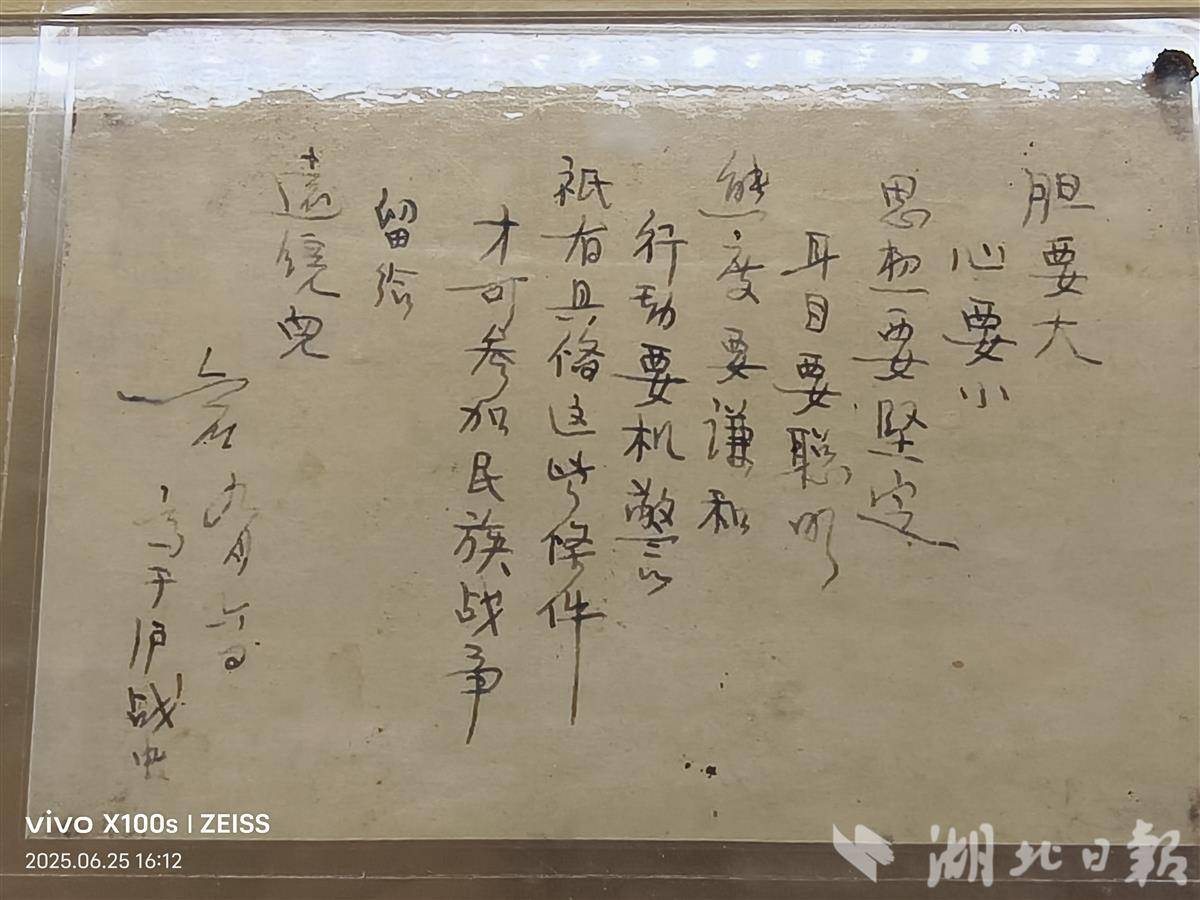 胆要大
心要小
思想要堅定
耳目要聪明
態度要谦和
行动要机警
祇有具俻这些條件
才可参加民族战争
留给
遠镜兒
九月六日
写于沪战中
vivo X100s | ZEISS
2025.06.25 16:12
湖北日報